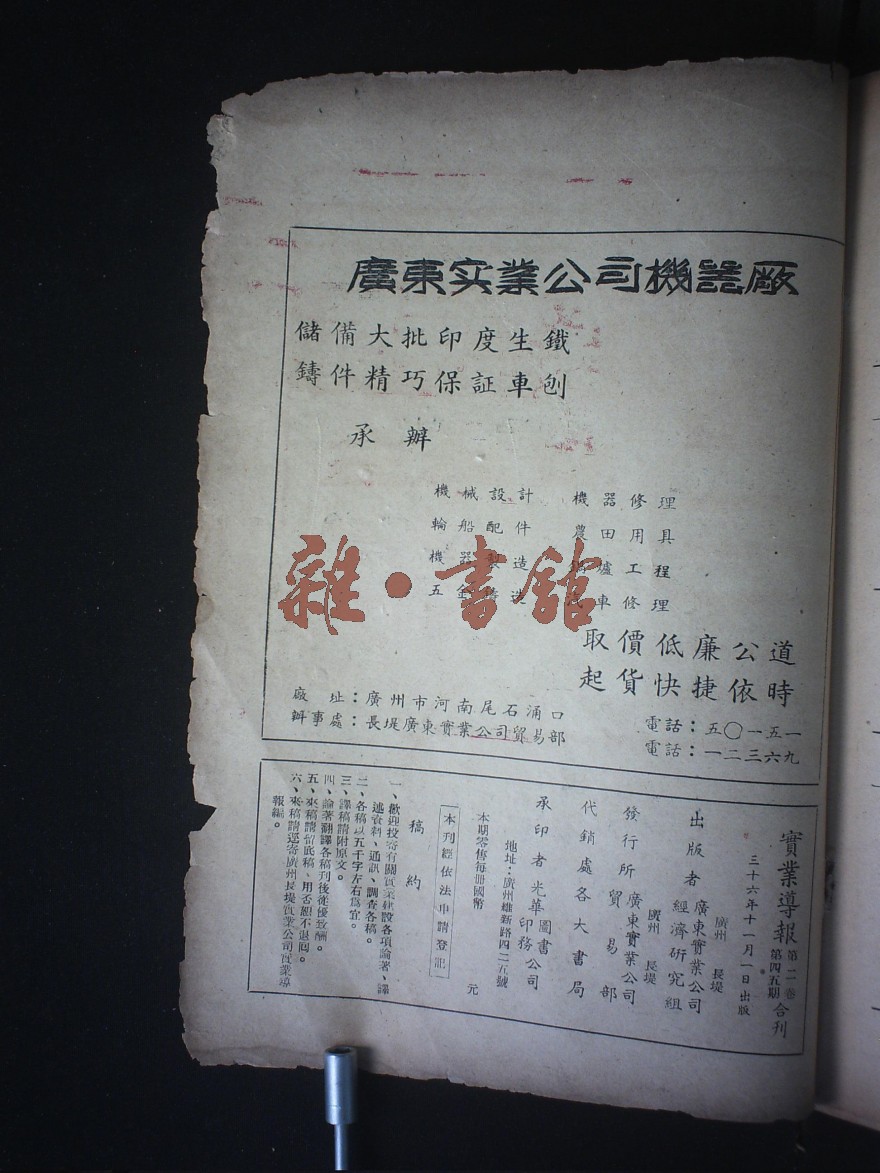 廣東实業公司機噐廠
儲備大批印度生鐵
鑄件精巧保証車刨
承辦
機械設計 機器修理
輪船配件 農田用具
機器製造 爐工程
五金鑄造 車修理
取價低廉公道
起貨快捷依時
廠址：廣州市河南尾石涌口 電話：五〇一五一
辦事處：長堤廣東實業公司貿易部 電話：一二三六九
雜·書館
實業導報 第二卷 第四五期 合刊
三十六年十一月一日出版
廣州 長堤
出版者 廣東實業公司 經濟研究組
廣州 長堤
發行所 廣東實業公司 貿易部
代銷處 各大書局
承印者 光華圖書印務公司
地址：廣州維新路四二五號
本期零售每冊國幣 元
本刊經依法申請登記
稿約
一、歡迎投寄有關實業建設各項論著、譯
述資料、通訊、調查各稿。
二、各稿以五千字左右為宜。
三、譯稿請附原文。
四、論著翻譯各稿刊後從優致酬。
五、來稿請留底稿、用否恕不退回。
六、來稿請逕寄廣州長堤實業公司實業導
報編。